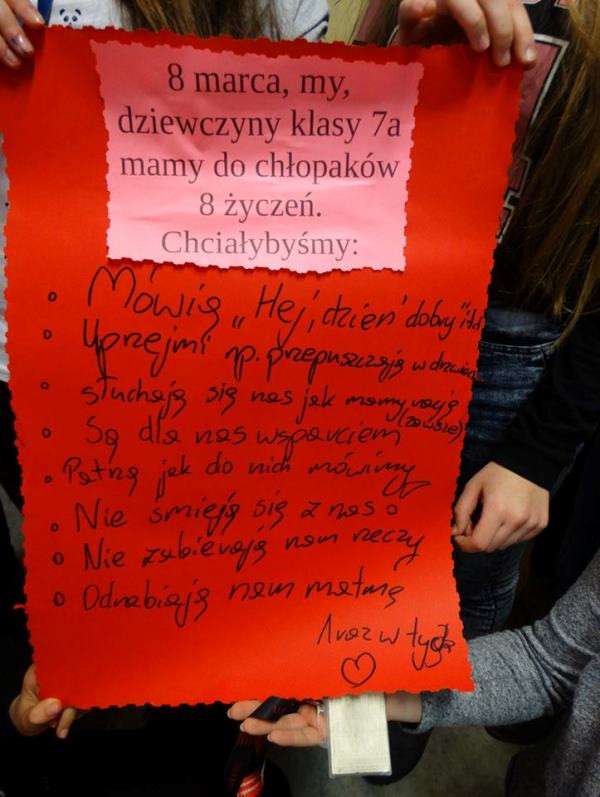 8 marca, my,
dziewczyny klasy 7a
mamy do chłopaków
8 życzeń.
Chciałybyśmy:
Mówią „Hej, dzień dobry" itd
Uprzejmi np. przepuszczają w drzwiach
słuchają się nas jak mamy rację
(zawsze)
Są dla nas wsparciem
Patrzą jak do nich mówimy
Nie śmieją się z nas
Nie zabierają nam rzeczy
Odrabiają nam matmę
1 raz w tyg